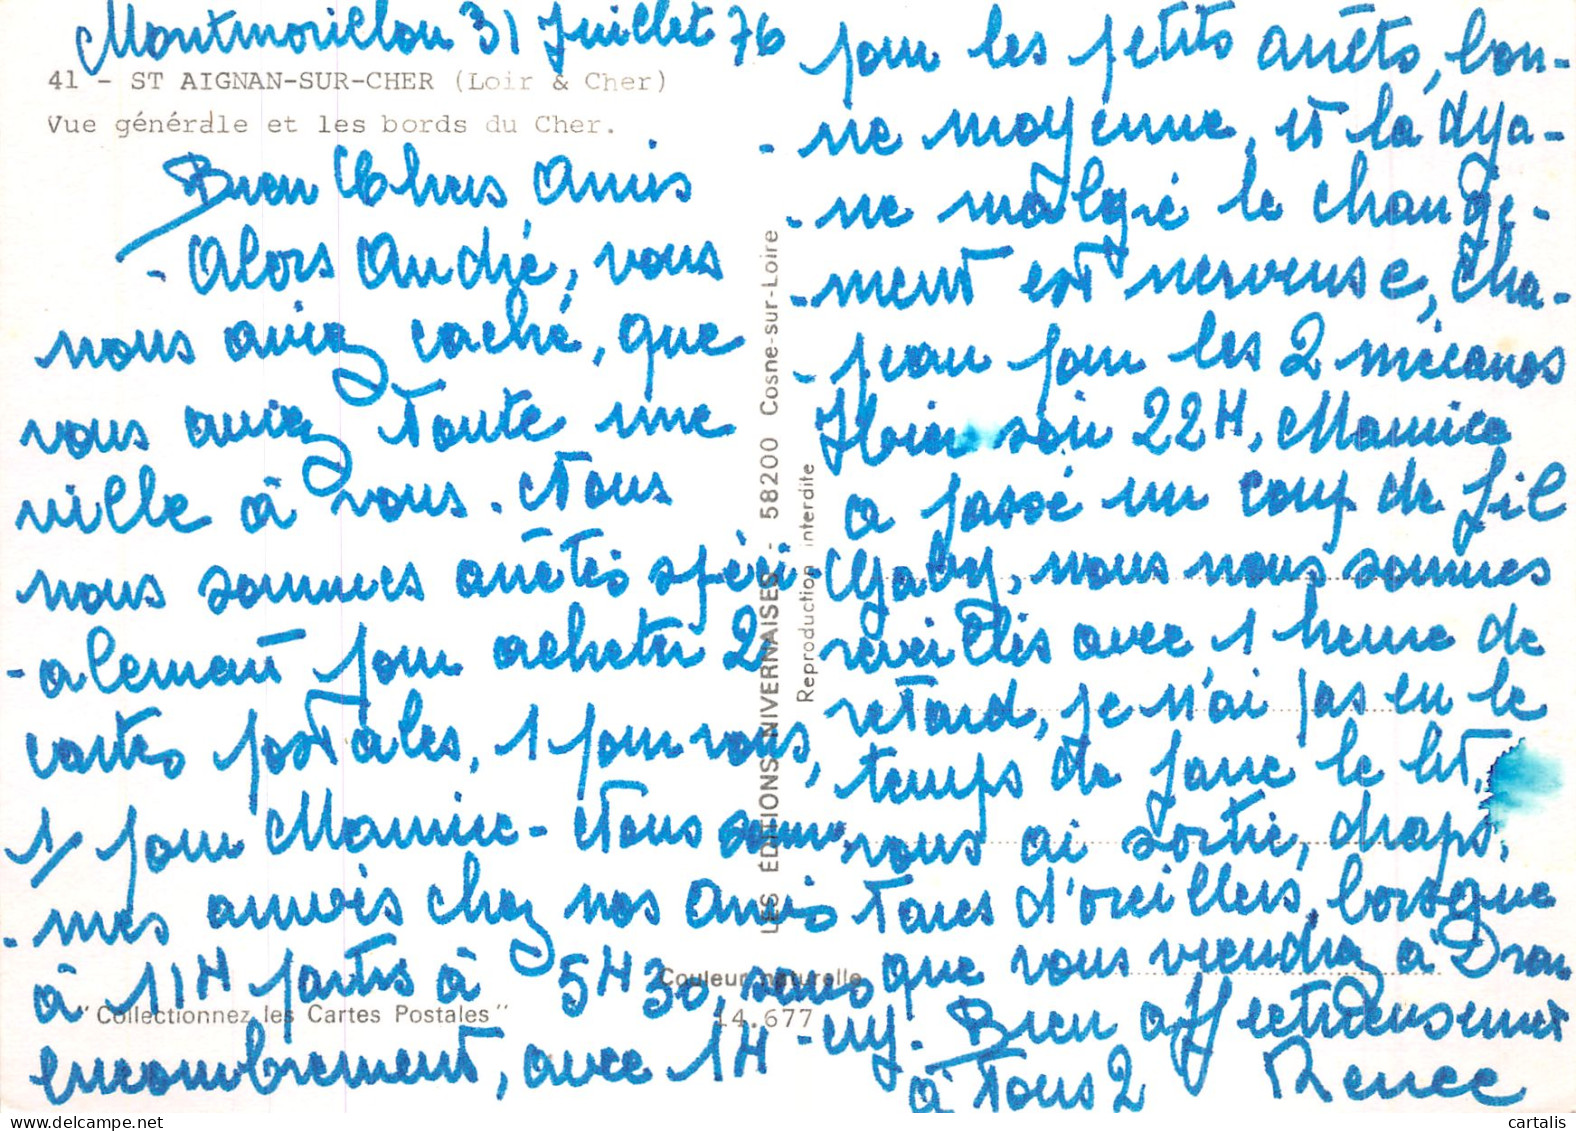 Montmorillon 31 Juillet 76
41 - ST AIGNAN-SUR-CHER (Loir & Cher)
Vue générale et les bords du Cher.
Bien Chers Amis
- Alors André, vous
nous aviez caché, que
vous aviez toute une
ville à vous. Nous
nous sommes arrêtés spéci-
-alement pour acheter 2
cartes postales, 1 pour vous,
1 pour Maurice - Nous som-
-mes arrivés chez nos amis
à 11H partis à 5H30, sans
encombrement, avec 1H
"Collectionnez les Cartes Postales"
Couleur naturelle
14.677
LES ÉDITIONS NIVERNAISES - 58200 Cosne-sur-Loire
Reproduction interdite
pour les petits arrêts, bon-
-ne moyenne, et la dya-
-ne malgré le change-
-ment est nerveuse, cha-
-peau pour les 2 mécanos
Hier soir 22H, Maurice
a passé un coup de fil
Gaby, nous nous sommes
réveillés avec 1 heure de
retard, je n'ai pas eu le
temps de faire le lit,
vous ai sortie, draps,
taies d'oreillers, lorsque
que vous viendrez à Dran-
-cy. Bien affectueusement
à tous 2 Renée
cartalis.com
cartalis